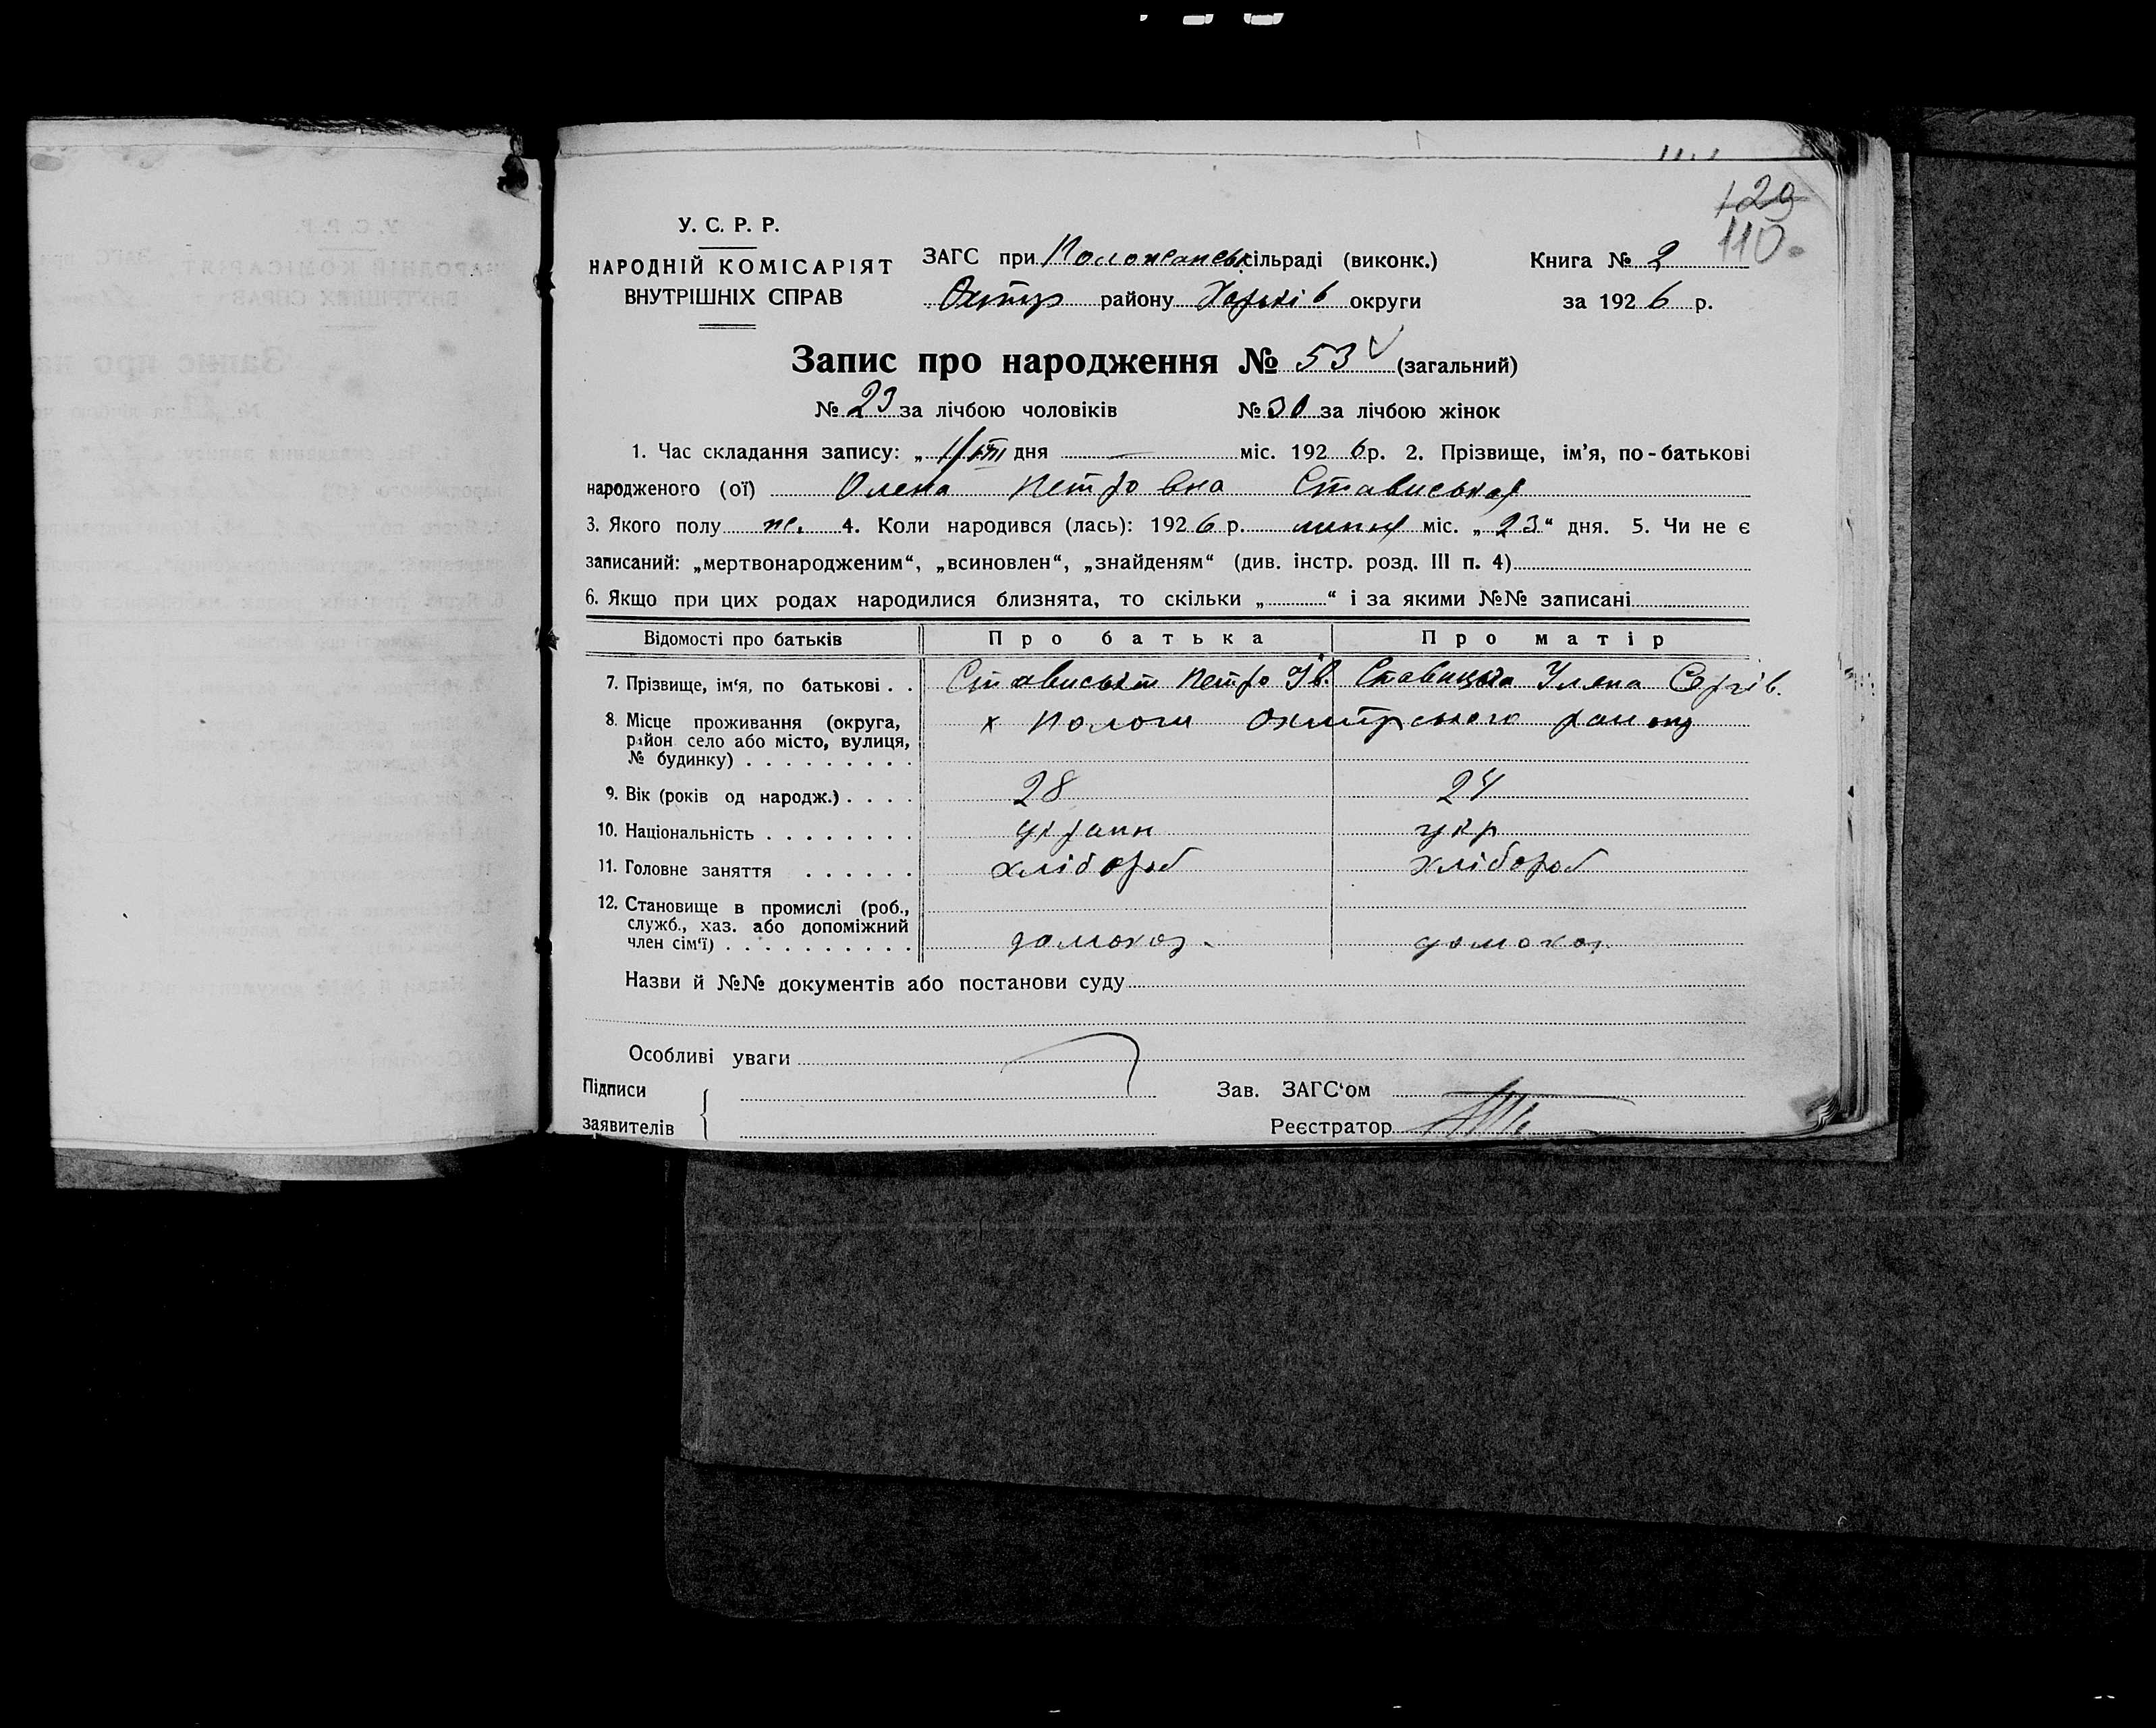 129
110
У. С. Р. Р.
НАРОДНІЙ КОМІСАРІЯТ
ВНУТРІШНІХ СПРАВ
ЗАГС при Положанськ сільраді (виконк.) Книга № 2
Охтир району Харьків округи за 1926 р.
Запис про народження № 53 (загальний)
№ 23 за лічбою чоловіків № 30 за лічбою жінок
1. Час складання запису: „ 1/VIII дня — міс. 1926 р. 2. Прізвище, ім'я, по-батькові
народженого (ої) Олена Петровна Стависька
3. Якого полу ж. 4. Коли народився (лась): 1926 р. липня міс. „23“ дня. 5. Чи не є
записаний: „мертвонародженим“, „всиновлен“, „знайденям“ (див. інстр. розд. III п. 4)
6. Якщо при цих родах народилися близнята, то скільки „ “ і за якими №№ записані
Відомості про батьків Про батька Про матір
7. Прізвище, ім'я, по батькові . . Стависький Петро Ів. Ставицька Улена Сергів.
8. Місце проживання (округа, х Пологи Охтирського району
район село або місто, вулиця,
№ будинку) . . . . . . . . .
9. Вік (років од народж.) . . . . 28 24
10. Національність . . . . . . . . украин укр
11. Головне заняття . . . . . . хлібороб хлібороб
12. Становище в промислі (роб.,
служб., хаз. або допоміжний
член сім'ї) . . . . . . . . . . домохоз. домохоз.
Назви й №№ документів або постанови суду
Особливі уваги
Підписи Зав. ЗАГС'ом
заявителів Реєстратор